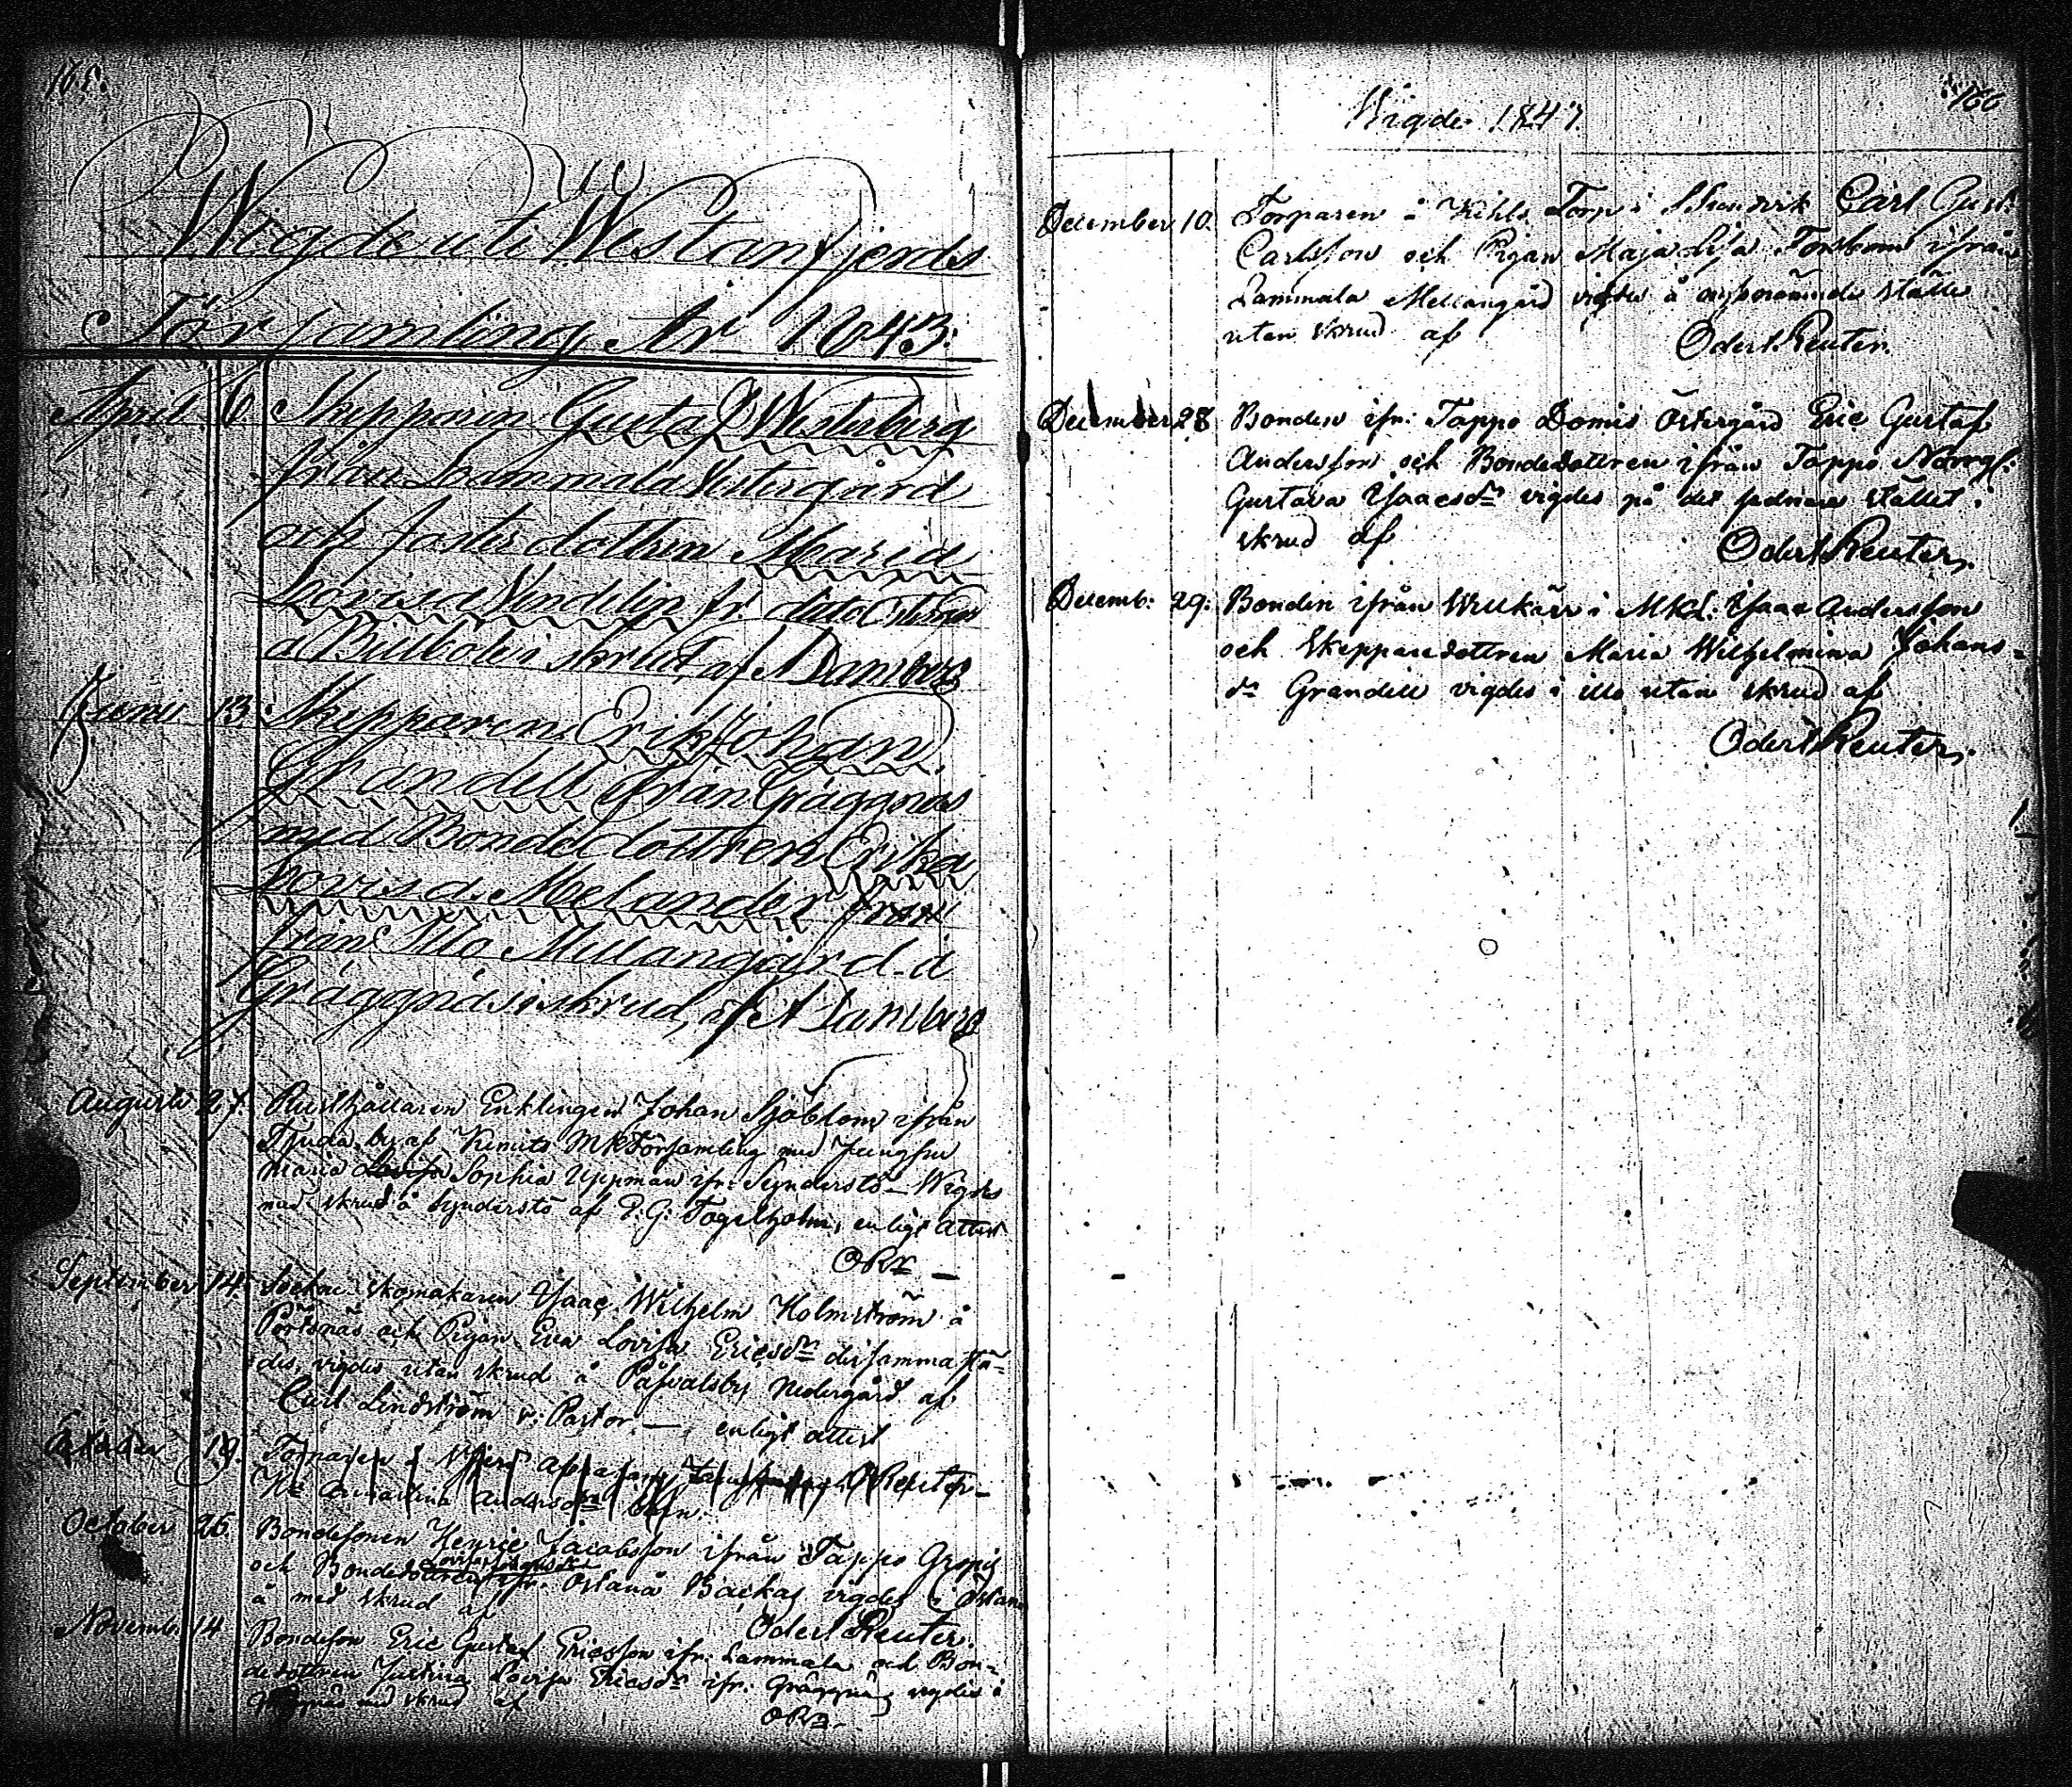 165.
Wigde uti Westanfjerds
Församling År 1843.
April 6. Skepparen Gustaf Westerberg
från Lammala Westergård
och fosterdottren Maria
Lovisa Vendelin fr. dito
a Billböle i skrud, af A Damberg
Juni 13. Skepparen Erik Johan
Grandell från Gräggnäs
med Bondedottren Erika
Lovisa Melander
från Illo Mellangård å
Gräggnäs i skrud, af A Damberg
Augusti 27. Rusthållaren Enklingen Johan Sjöblom ifrån
Tjuda by af Kimito Mk Församling med Jungfru
Maria Sophia Uppman ifr: Synderstö – Wigdes
med skrud å Synderstö af P. G. Fogelholm, enligt attest
ORr –
September 14. Sockne skomakaren Isaac Wilhelm Holmström å
Pörtsnäs och Pigan Eva Lovisa Ericsdr dersammastä-
des, vigdes utan skrud å Påfvalsby Nedergård af
Carl Lindström v: Pastor – enligt attest
19. OReuter –
Andersdr
October 26. Bondesonen Henric Jacobsson ifrån Tappo Gropis
och Bondedottren ifr. Östanå Backas vigdes i Östan
å med skrud af
Odert Reuter.
Novemb. 14 Bondeson Eric Gustaf Ericsson ifr: Lammala och Bon-
dedottren Justina Lovisa Ericsdr ifr: Gräggnäs vigdes i
Gräggnäs med skrud af
ORr.
166
Wigde 1843.
December 10. Torparen å Torp i Carl Gust:
Carlsson och Pigan Maja Lisa Forsbom ifrån
Lammala Mellangård vigdes å ställe
utan skrud af
Odert Reuter.
December 28 Bonden ifr: Tappo Domis Östergård Eric Gustaf
Andersson och Bondedottren ifrån Tappo Norrg:
Gustava Isaacsdr vigdes på det sednare stället i
skrud af
Odert Reuter.
Decemb: 29. Bonden ifrån Willkärr i Mkd: Isaac Andersson
och Skepparedottren Maria Wilhelmina Johans-
dr Grandell vigdes i Illo utan skrud af
Odert Reuter.